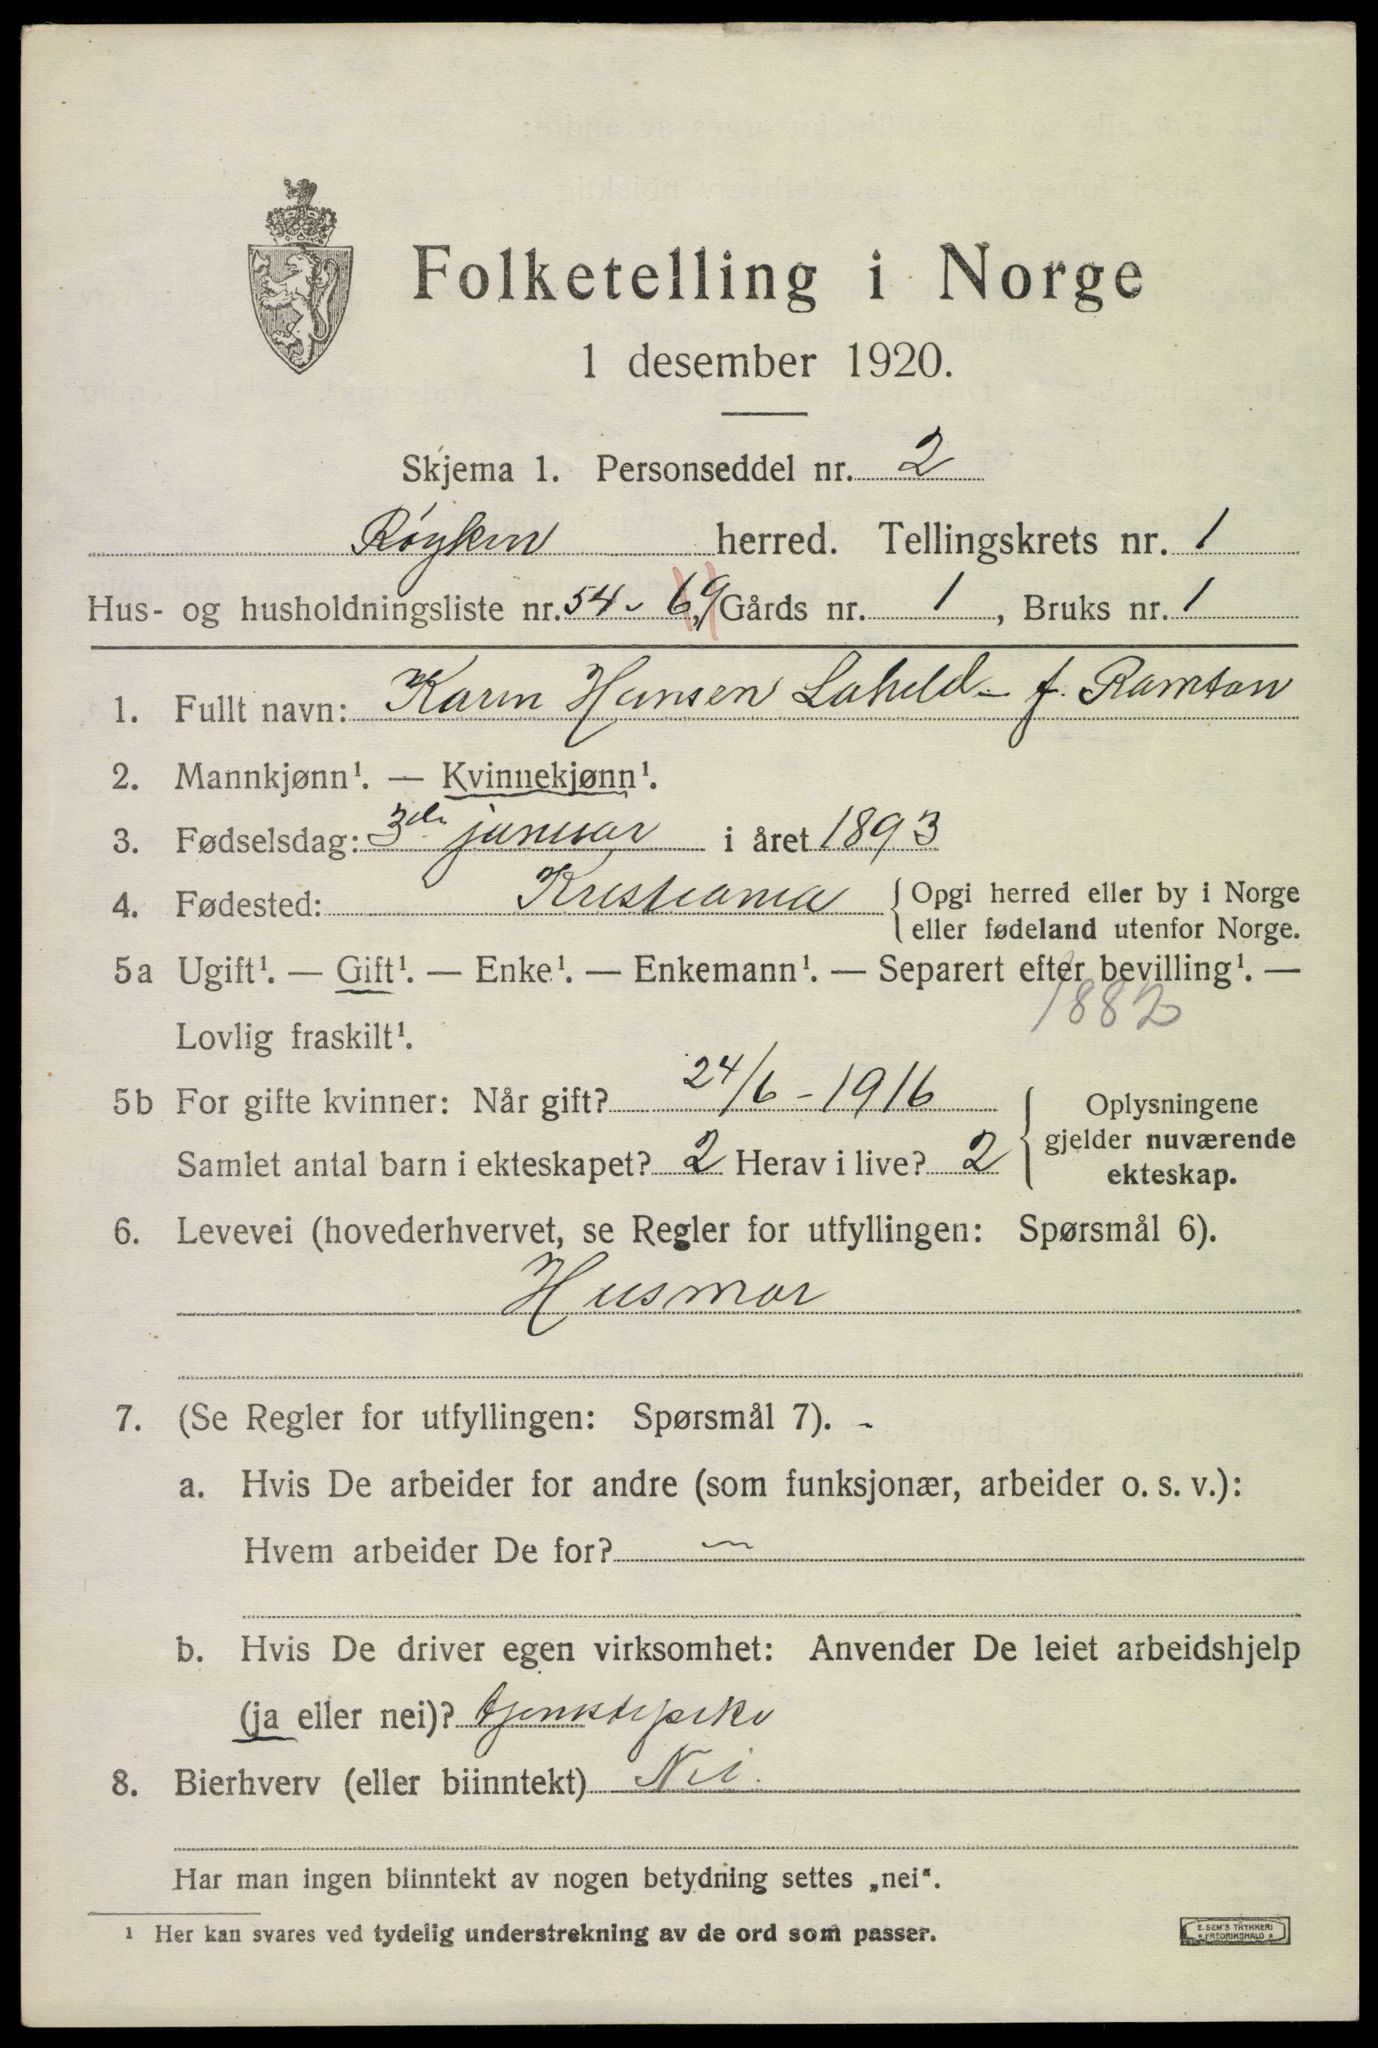 Folketelling i Norge
1 desember 1920.
Skjema 1. Personseddel nr. 2
Røyken herred. Tellingskrets nr. 1
Hus- og husholdningsliste nr. 54 - 69 Gårds nr. 1, Bruks nr. 1
1. Fullt navn: Karin Hansen Laheld - f. Ramton
2. Mannkjønn¹. — Kvinnekjønn¹.
3. Fødselsdag: 3die januar i året 1893
4. Fødested: Kristiania { Opgi herred eller by i Norge
eller fødeland utenfor Norge.
5a Ugift¹. — Gift¹. — Enke¹. — Enkemann¹. — Separert efter bevilling¹. —
1882
Lovlig fraskilt¹.
5b For gifte kvinner: Når gift? 24/6 - 1916
Samlet antal barn i ekteskapet? 2 Herav i live? 2
Oplysningene
gjelder nuværende
ekteskap.
6. Levevei (hovederhvervet, se Regler for utfyllingen: Spørsmål 6).
Husmor
7. (Se Regler for utfyllingen: Spørsmål 7). -
a. Hvis De arbeider for andre (som funksjonær, arbeider o. s. v.):
Hvem arbeider De for? —
b. Hvis De driver egen virksomhet: Anvender De leiet arbeidshjelp
(ja eller nei)? tjenstepike
8. Bierhverv (eller biinntekt) Nei.
Har man ingen biinntekt av nogen betydning settes „nei“.
¹ Her kan svares ved tydelig understrekning av de ord som passer.
E. SEM'S TRYKKERI
FREDRIKSHALD